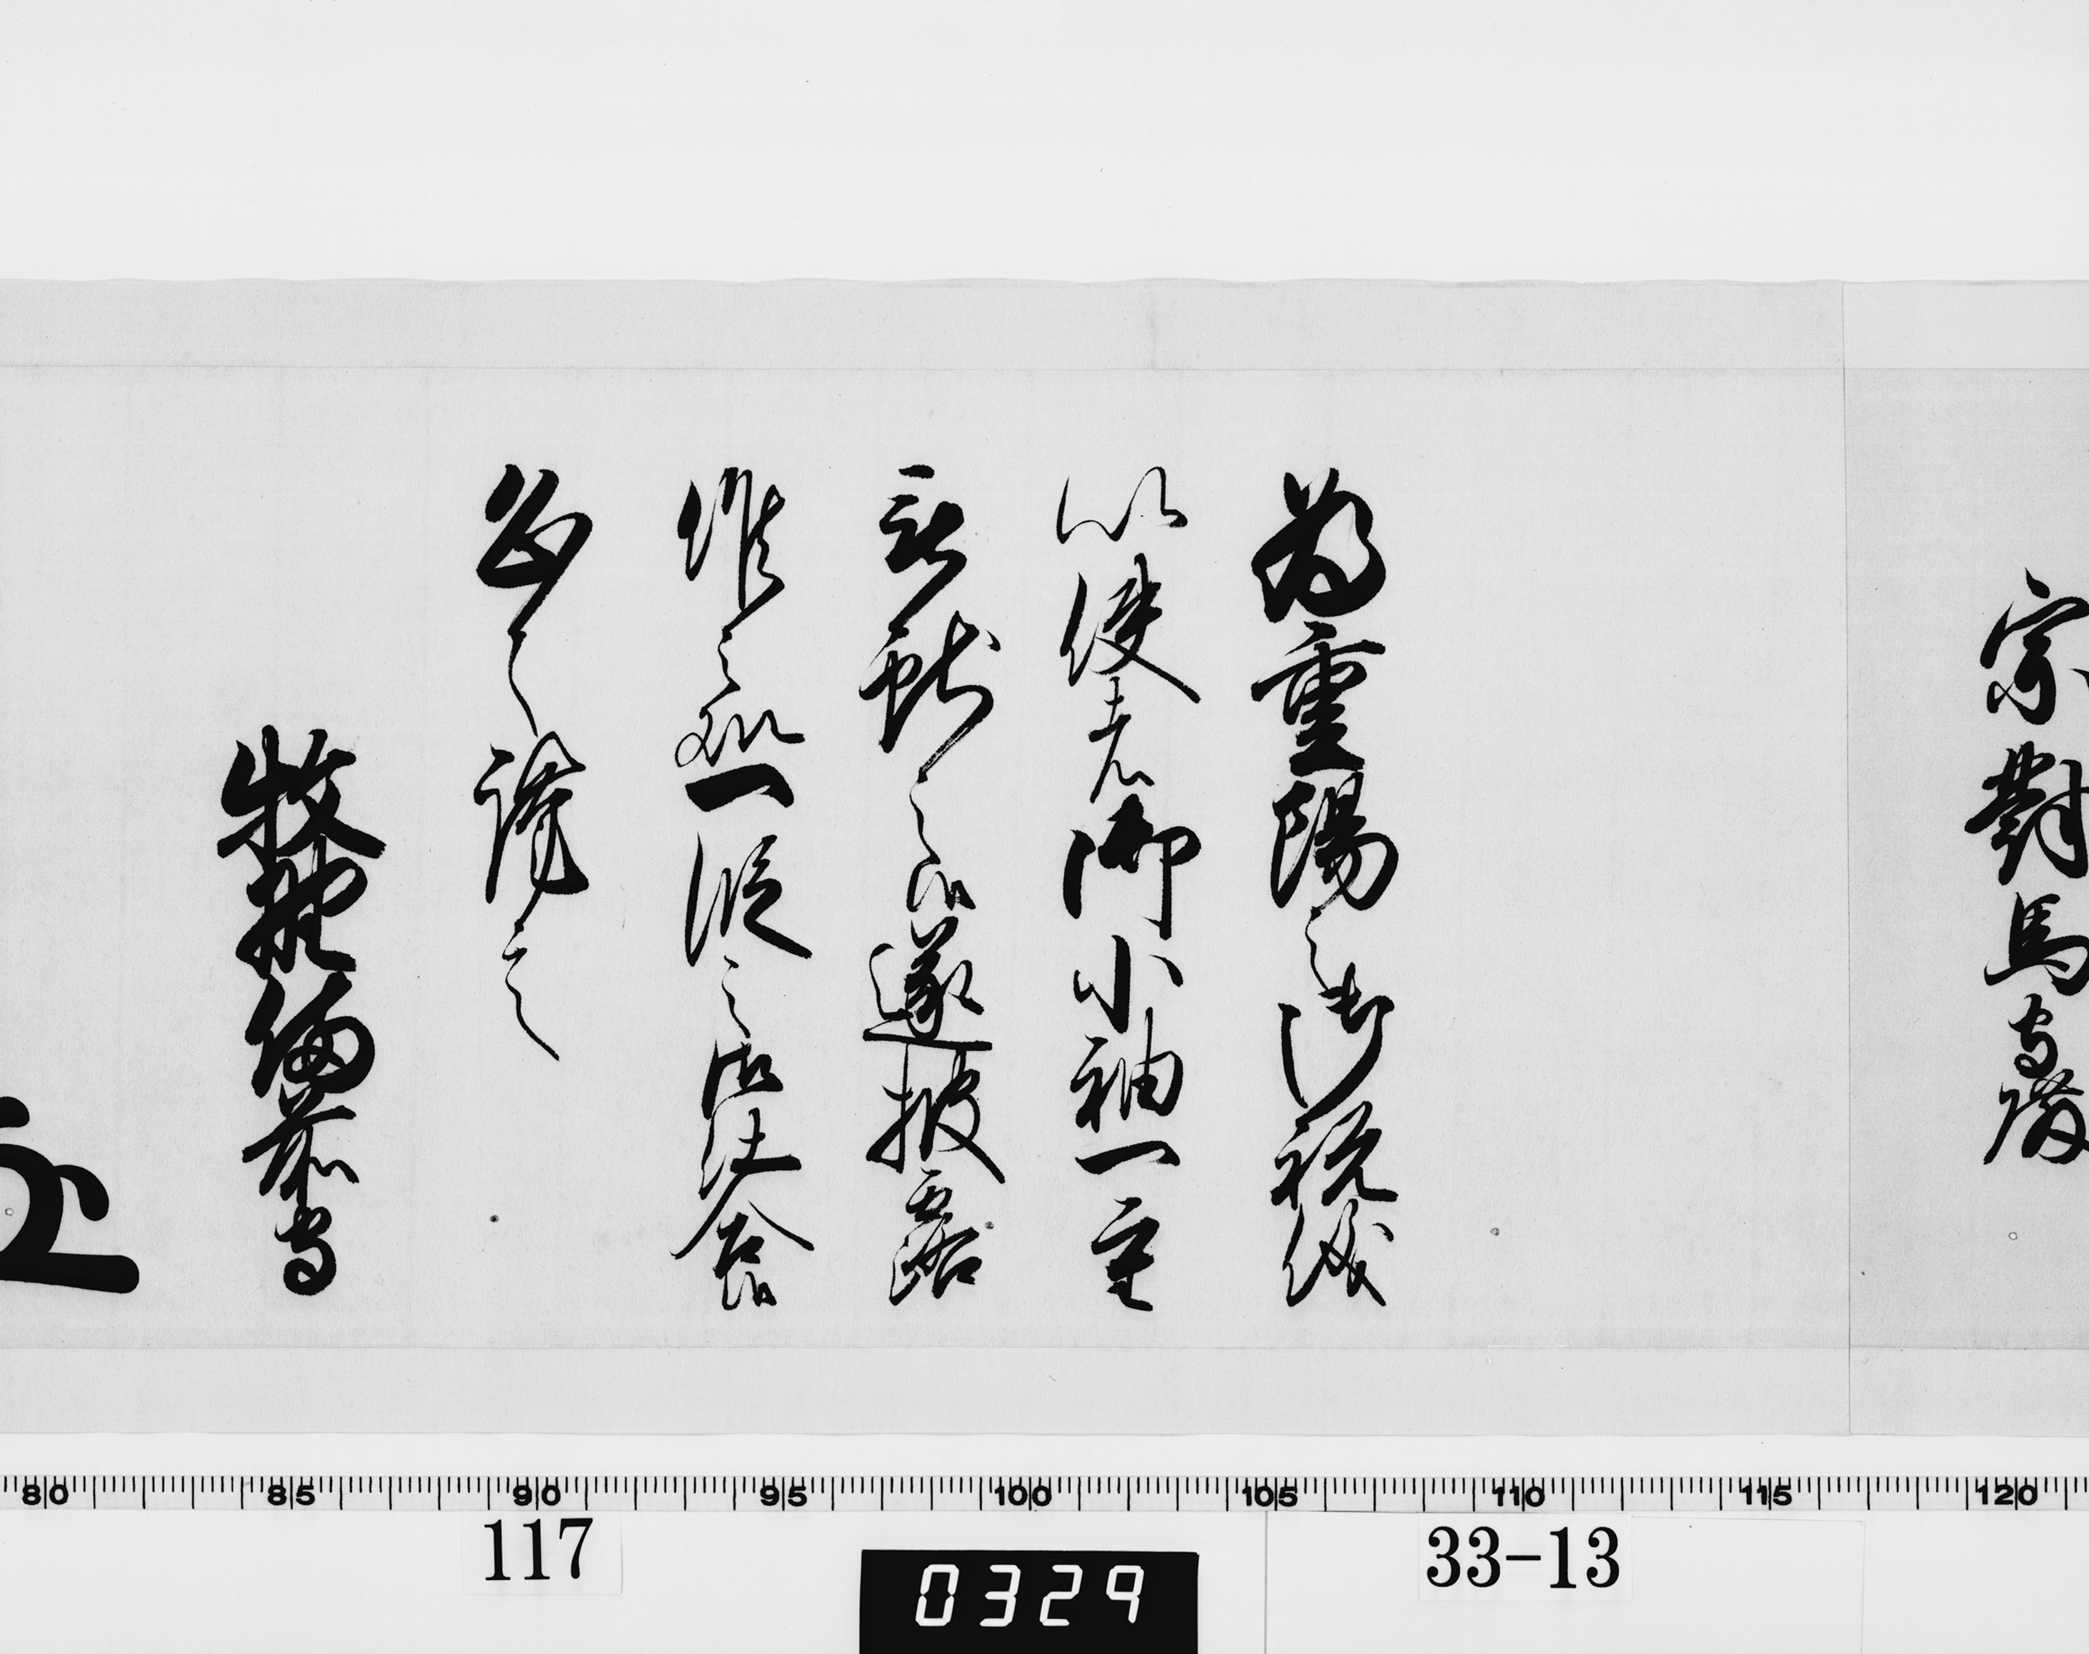 宗對馬守殿
為重陽之御祝儀
以使者御小袖一重
被献之候遂披露
候之処一段之御仕合候
恐々謹言
牧野備前守
80 85 90 95 100 105 110 115 120
117
0329
33-13